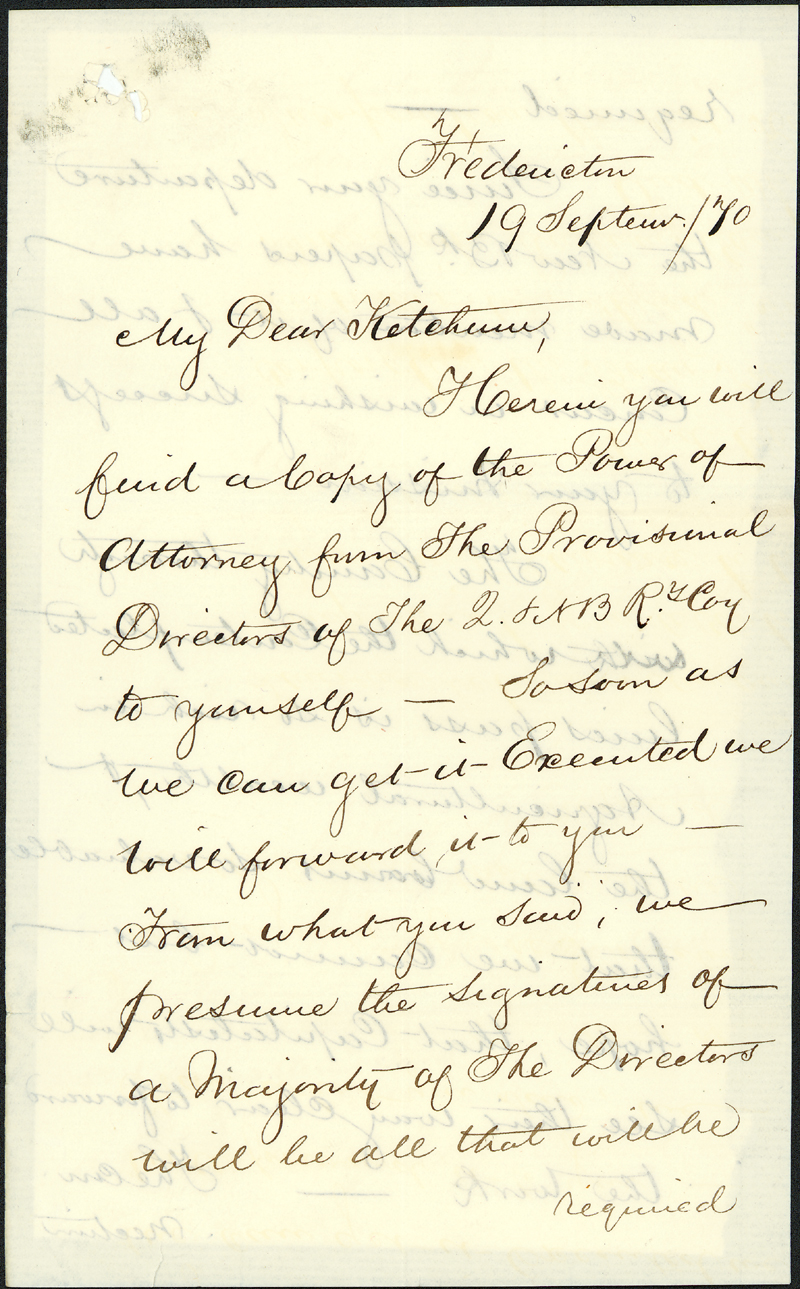 Fredericton
19 Septemr. /70
My Dear Ketchum,
Herein you will
find a Copy of the Power of
Attorney from The Provisional
Directors of The Q. & N B Ry. Coy
to yourself — So soon as
we can get it Executed we
will forward it to you —
From what you said, we
presume the signatures of
a Majority of The Directors
will be all that will be
required